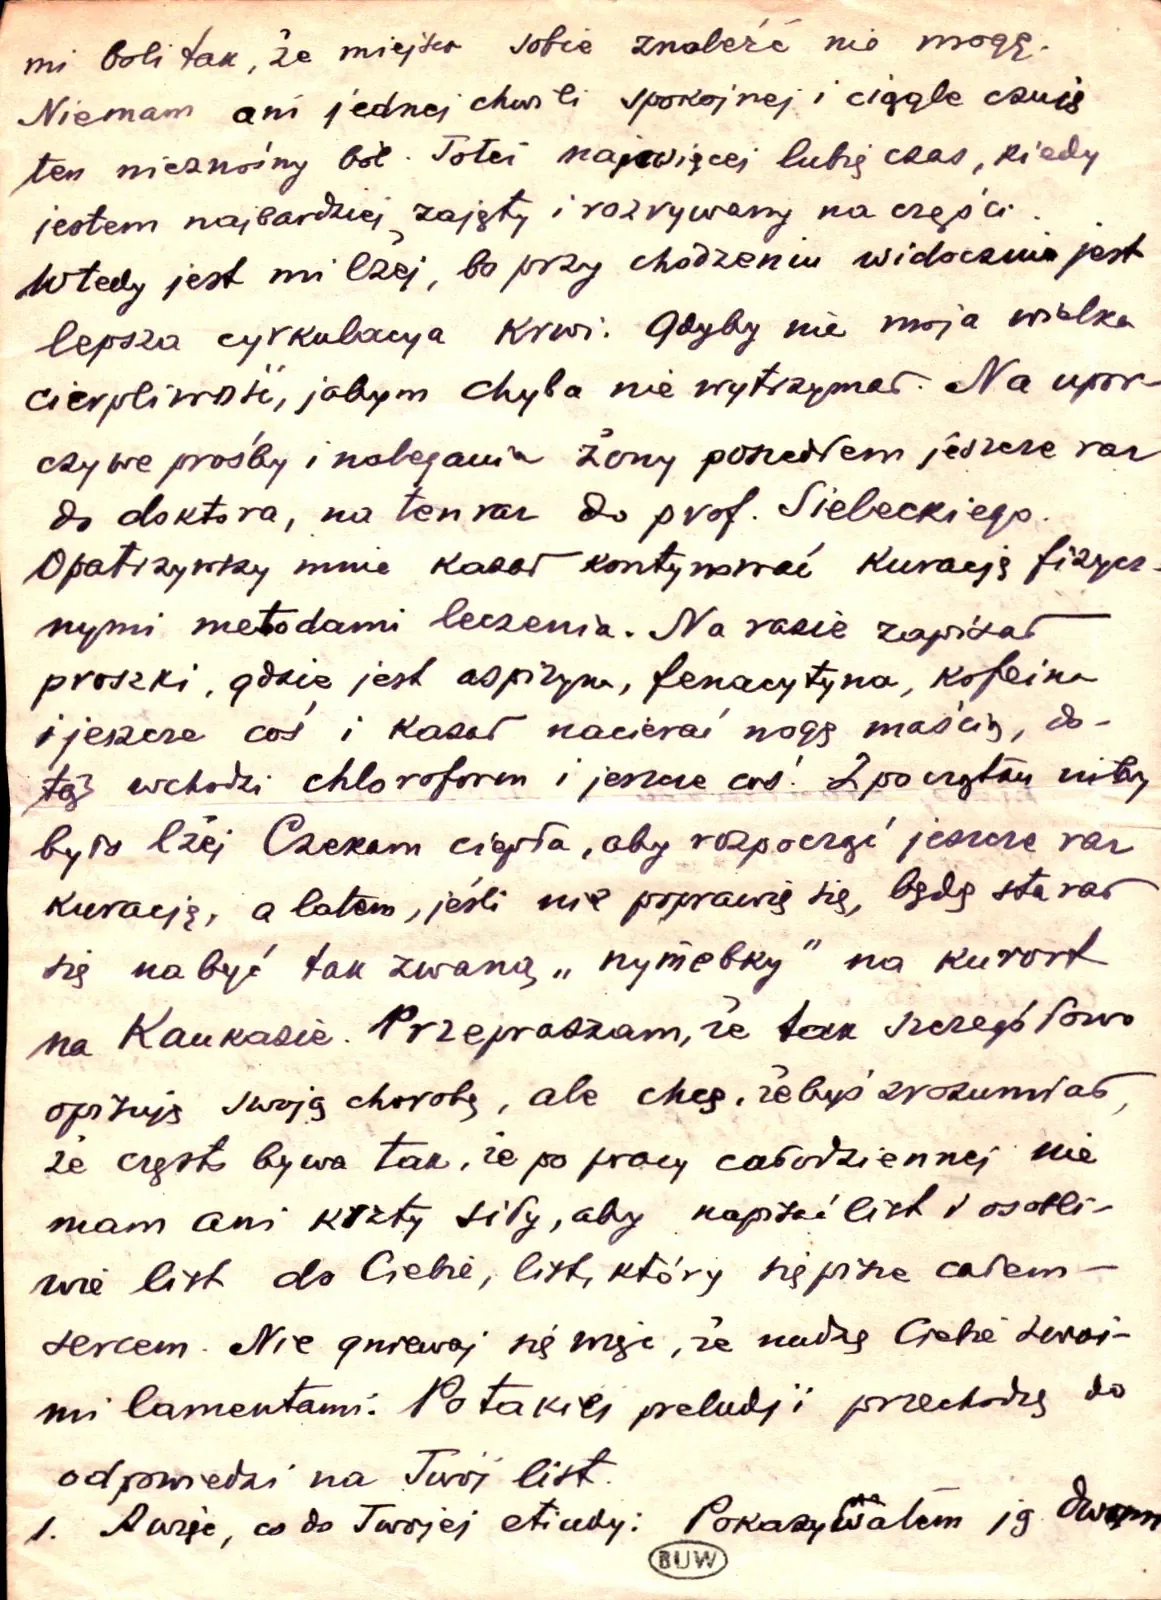 mi boli tak, że miejsca sobie znaleźć nie mogę.
Niemam ani jednej chwili spokojnej i ciągle czuję
ten nieznośny ból. Toteż najwięcej lubię czas, kiedy
jestem najbardziej zajęty i rozrywany na części.
Wtedy jest mi lżej, bo przy chodzeniu widocznie jest
lepsza cyrkulacya krwi. Gdyby nie moja wielka
cierpliwość, jabym chyba nie wytrzymał. Na upor-
czywe prośby i nalegania żony poszedłem jeszcze raz
do doktora, na ten raz do prof. Siebeckiego.
Opatrzywszy mnie kazał kontynować kuracją fizycz-
nymi metodami leczenia. Na razie zapisał
proszki, gdzie jest aspiryna, fenacytyna, kofeina
i jeszcze coś i kazał nacierać nogę maścią, do-
tąż wchodzi chloroform i jeszcze coś. Z początku niby
było lżej Czekam ciepła, aby rozpocząć jeszcze raz
kuracją, a latem, jeśli nie poprawię się, będę starał
się nabyć tak zwaną „nymebky" na kurort
na Kaukazie. Przepraszam, że tak szczegółowo
opisuję swoją chorobę, ale chcę, żebyś zrozumiał,
że często bywa tak, że po pracy całodziennej nie
mam ani krzty siły, aby napisać list i osobli-
wie list do Ciebie, list, który się pisze całem-
sercem. Nie gniewaj się więc, że nudzę Ciebie swoi-
mi lamentami. Po takiej preludji przechodzę do
odpowiedzi na Twój list.
1. A więc, co do Twojej etiudy: Pokazywałem ją dwom
BUW